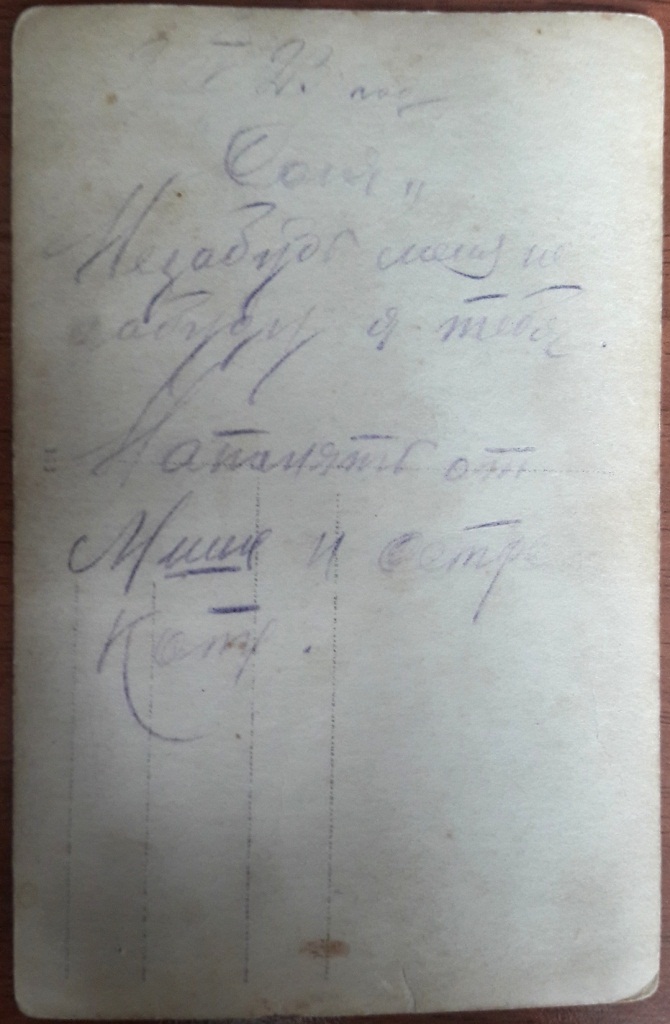 2. год
Соня
Незабудь меня не
забуду я тебя.
На память от
Миши и сестре
Кат.